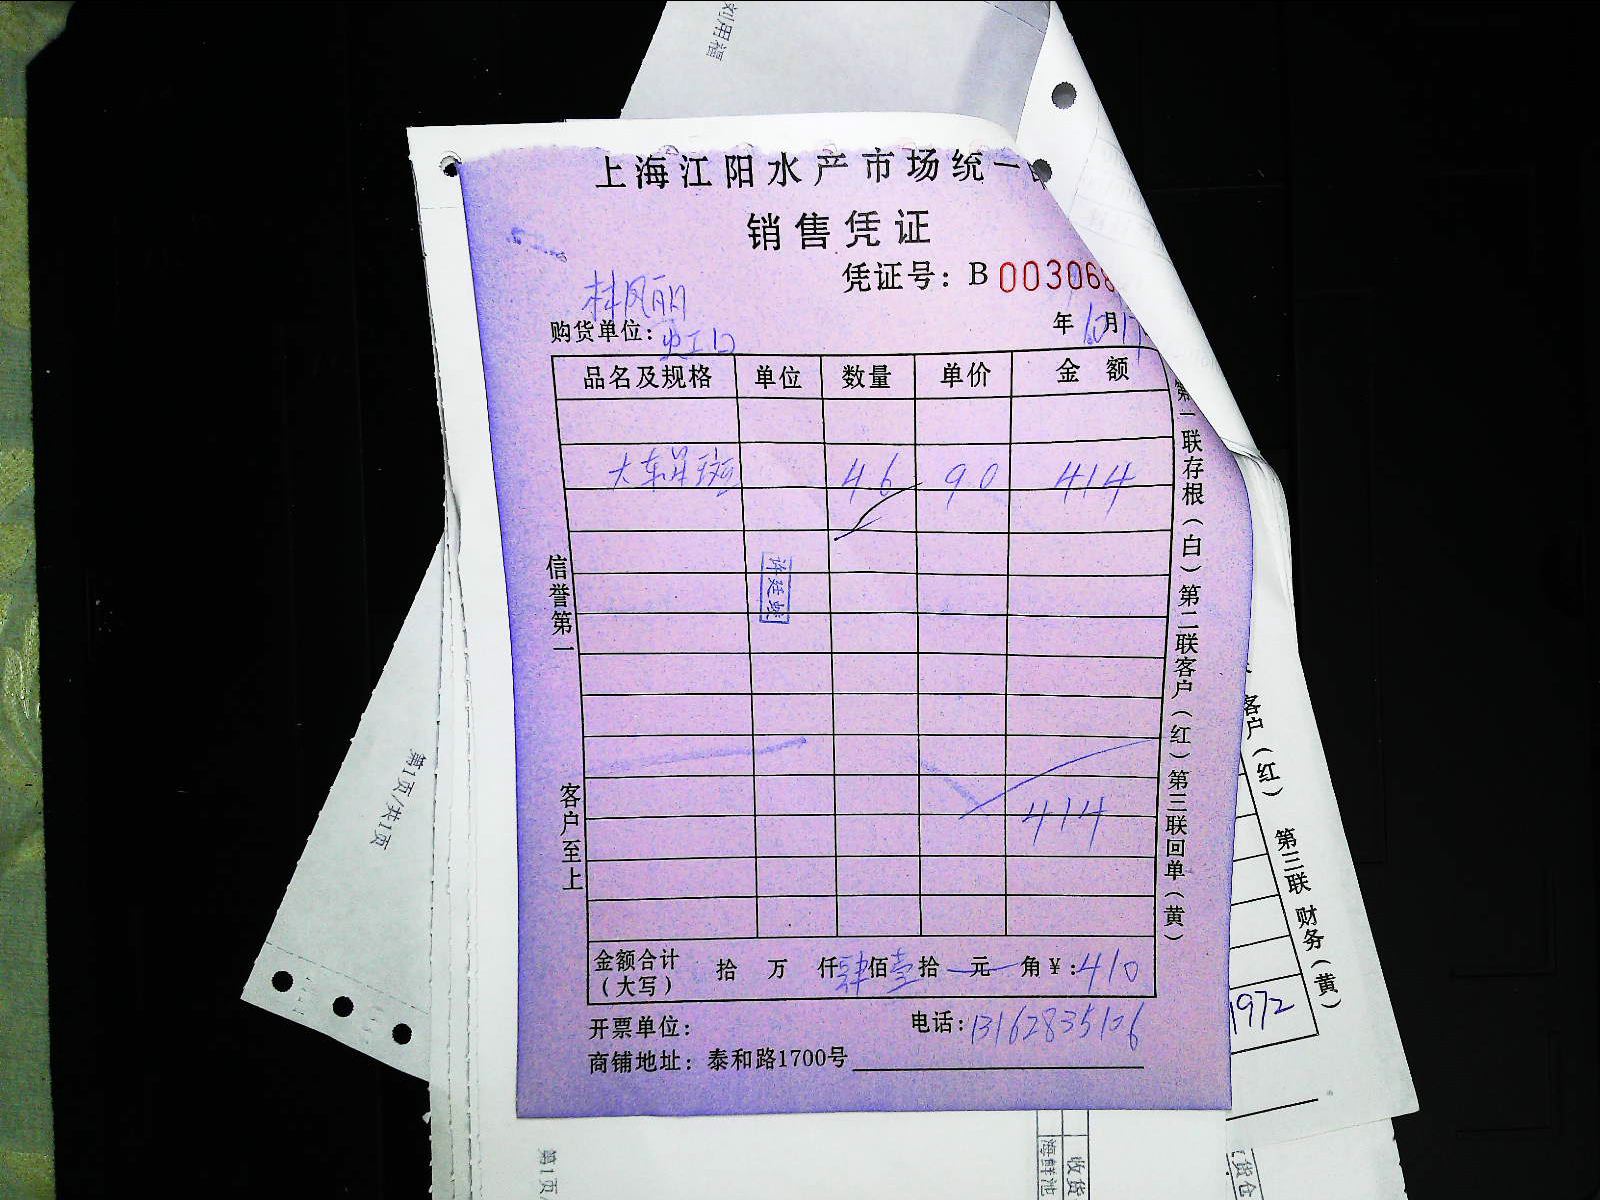 刘用福
上海江阳水产市场统一
销售凭证
凭证号：B 003068
林凤丽
购货单位：虹口
年 10月17
品名及规格 单位 数量 单价 金额
大东星斑 4.6 90 414
许廷
414
金额合计（大写） 拾 万 仟肆佰壹拾 元 角¥：410
开票单位：
电话：13162835126
商铺地址：泰和路1700号
信誉第一
客户至上
第一联存根（白）第二联客户（红）第三联回单（黄）
第1页/共1页
客户（红） 第三联 财务（黄）
1972
第1页
海鲜池
收货
货仓